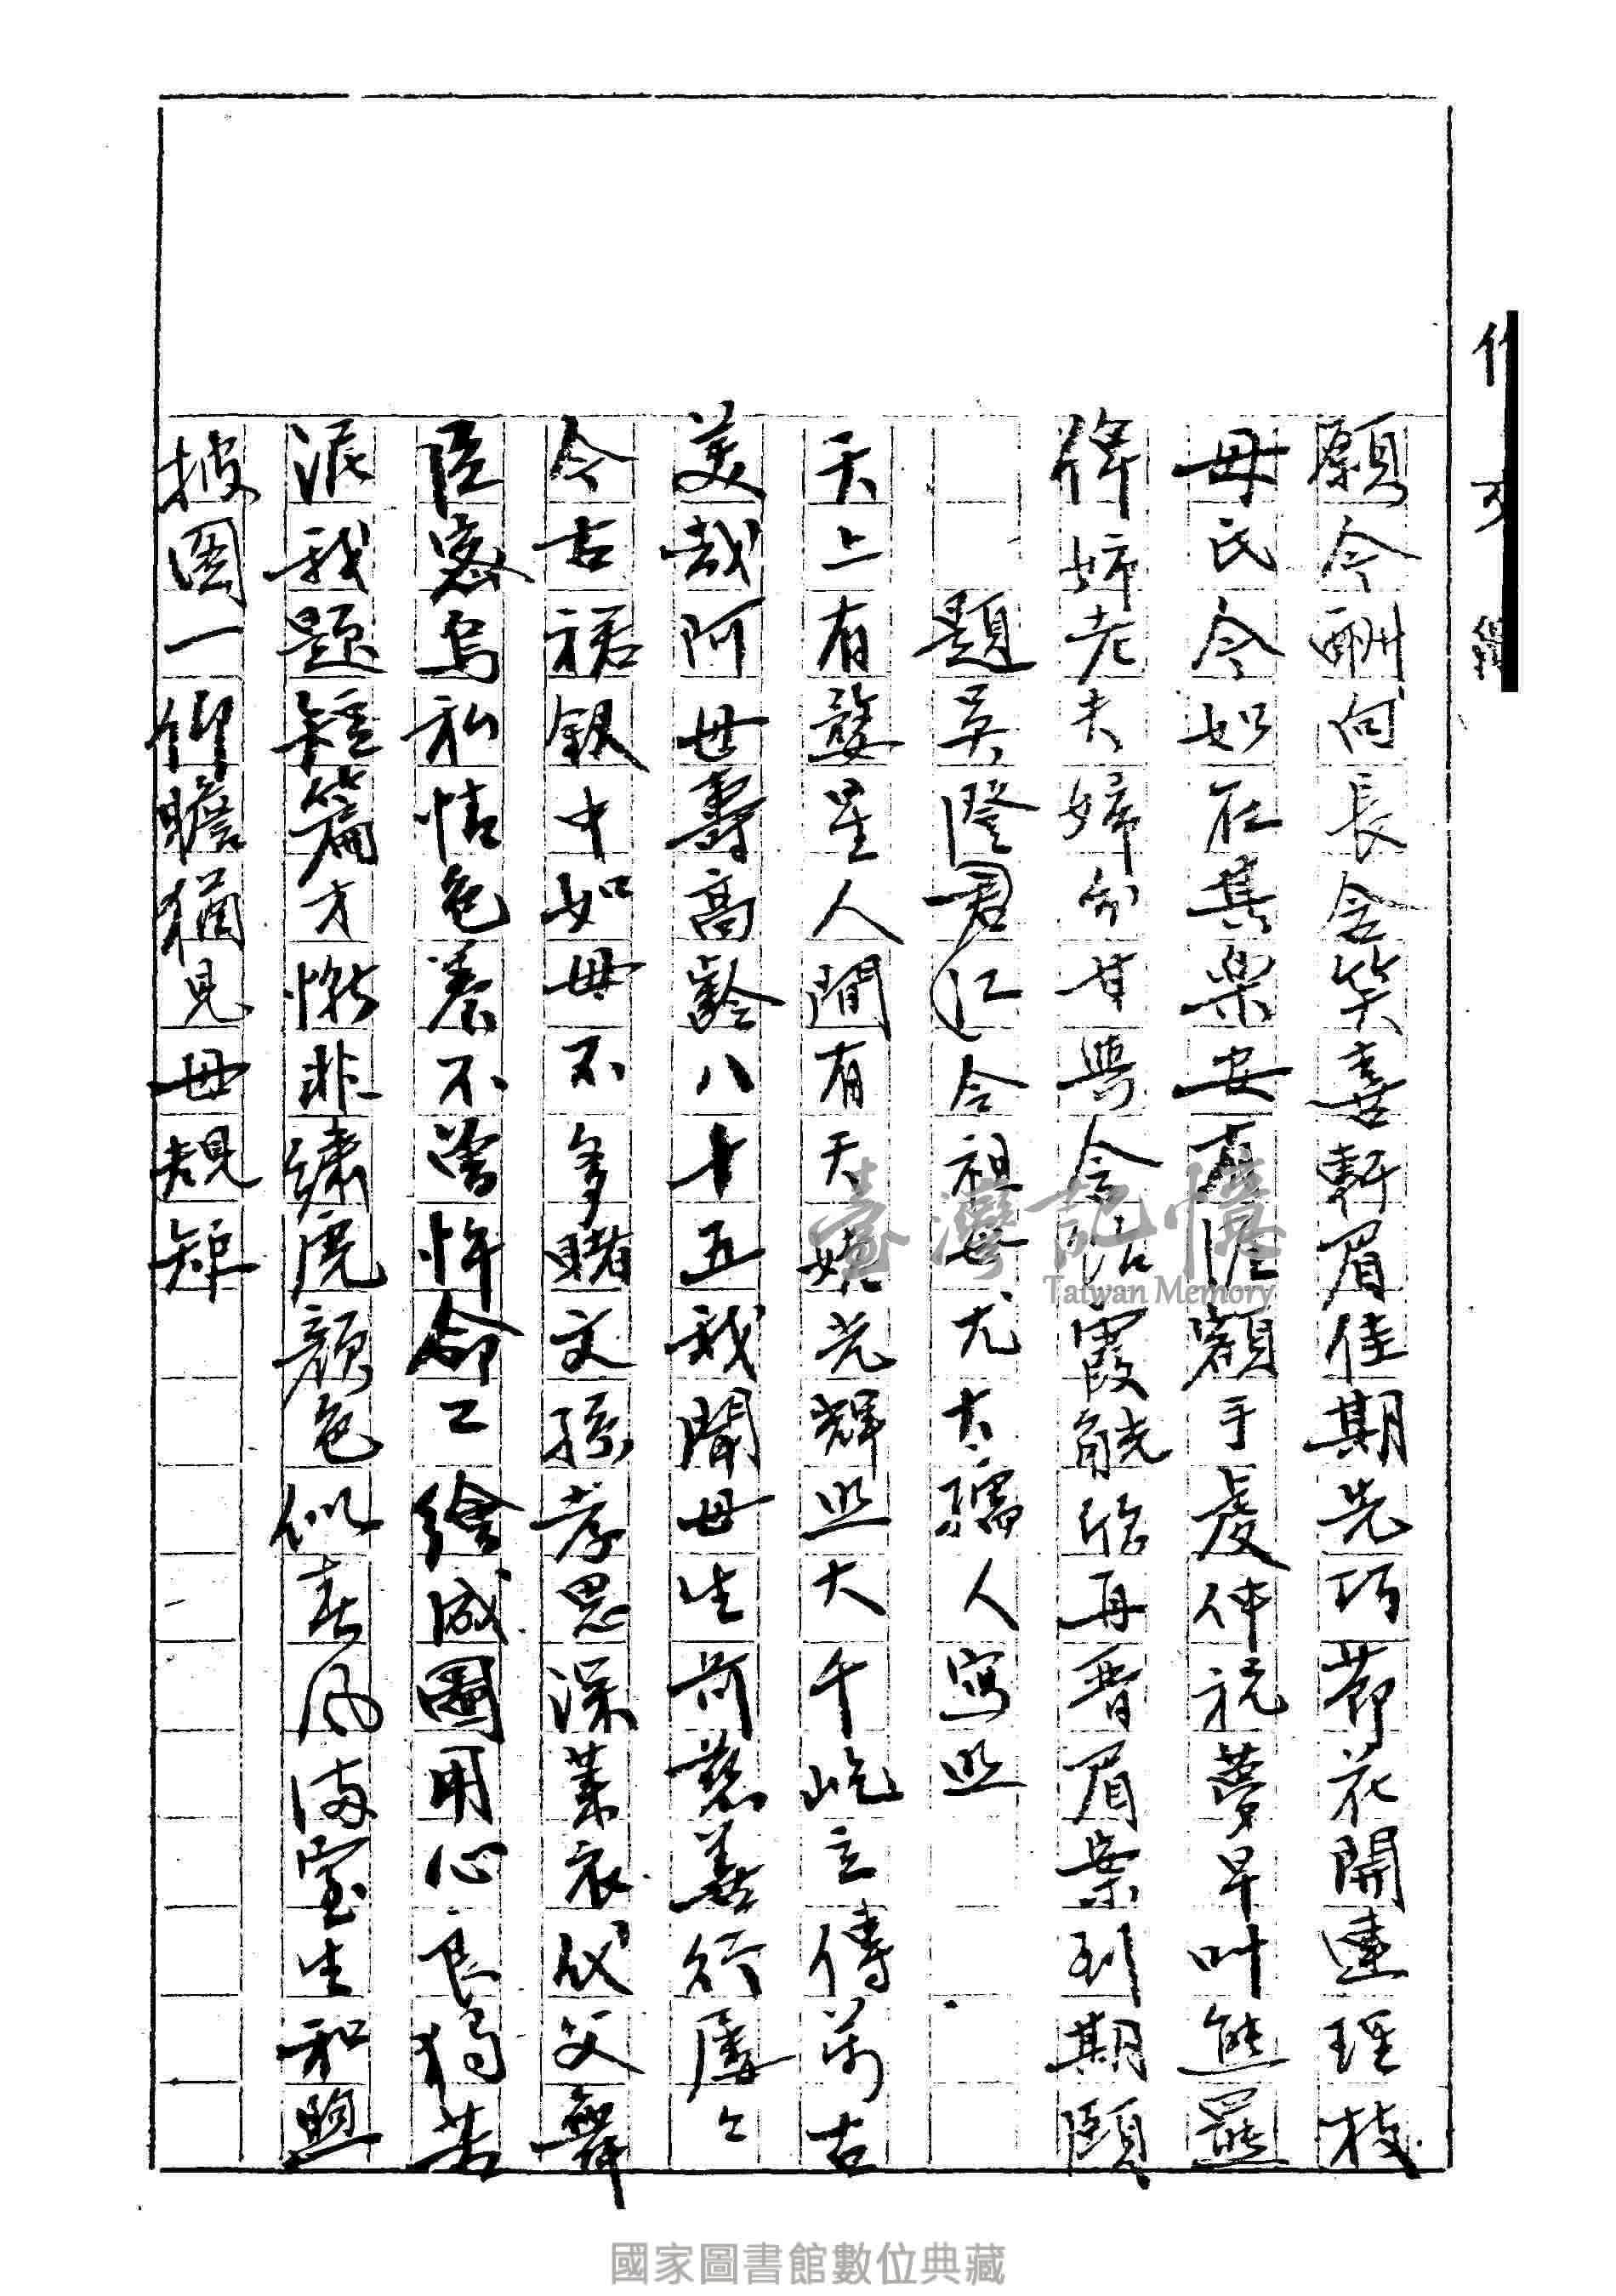 願令酬何長含笑喜軒眉佳期先巧節花開連理枝
母氏今如在其樂安有涯額手虔仲祝夢早叶熊羆
俾姊老夫婦分甘與含飴霞觥治再晋眉案到期頤
題吳澄君江令祖母尤太孺人寫照
天上有婺星人間有天姥光輝照大千屹立傳萬古
美哉阿母壽高齡八十五我聞母生前慈善行屢々
今古裙釵中如母不多賭文孫孝思深萊衣代父舞
臣密烏私情色養不曾忤命工繪成圖用心良獨苦
浼我題短篇才慚非繡虎顏色似春風滿室生和煦
披圖一仰瞻猶見母規矩
臺灣記憶
Taiwan Memory
國家圖書館數位典藏